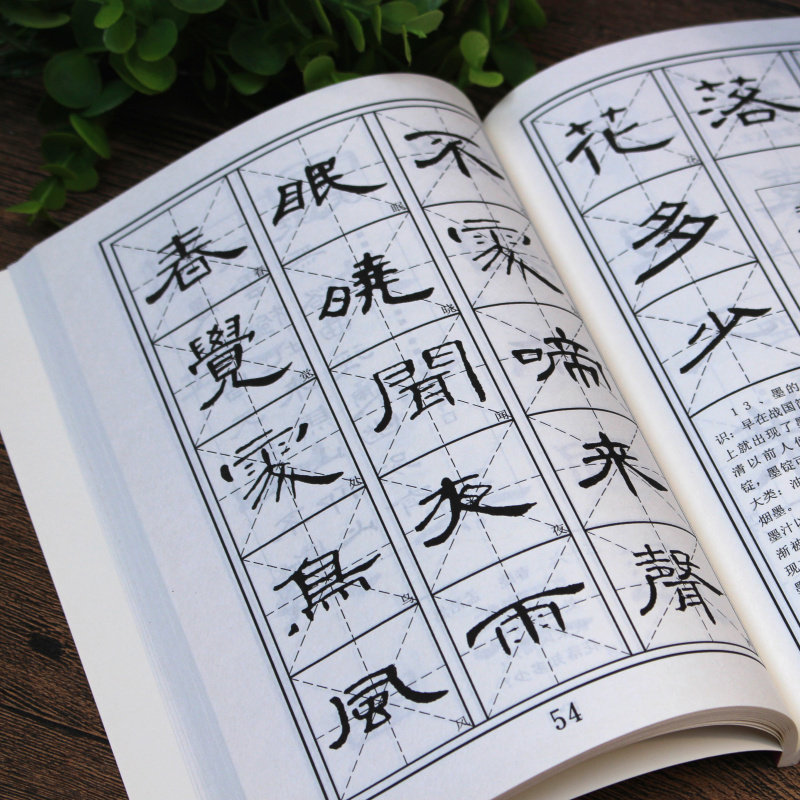 春眠不
眠
覺曉處
晓
處聞啼
处 闻
鳥夜來
鸟 夜
風雨聲
风
54
花落
多
少
13、墨的
识：早在战国
上就出现了
清以前人
锭，墨锭
大类：油
烟墨。
墨汁
渐被
现